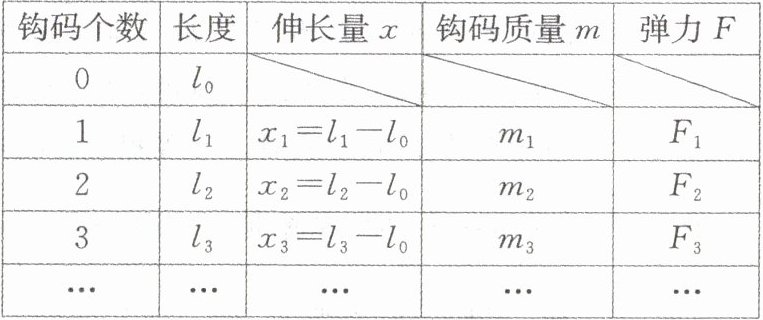 钩码个数 长度 伸长量 x 钩码质量 m 弹力 F
0 l₀
1 l₁ x₁=l₁-l₀ m₁ F₁
2 l₂ x₂=l₂-l₀ m₂ F₂
3 l₃ x₃=l₃-l₀ m₃ F₃
… … … … …